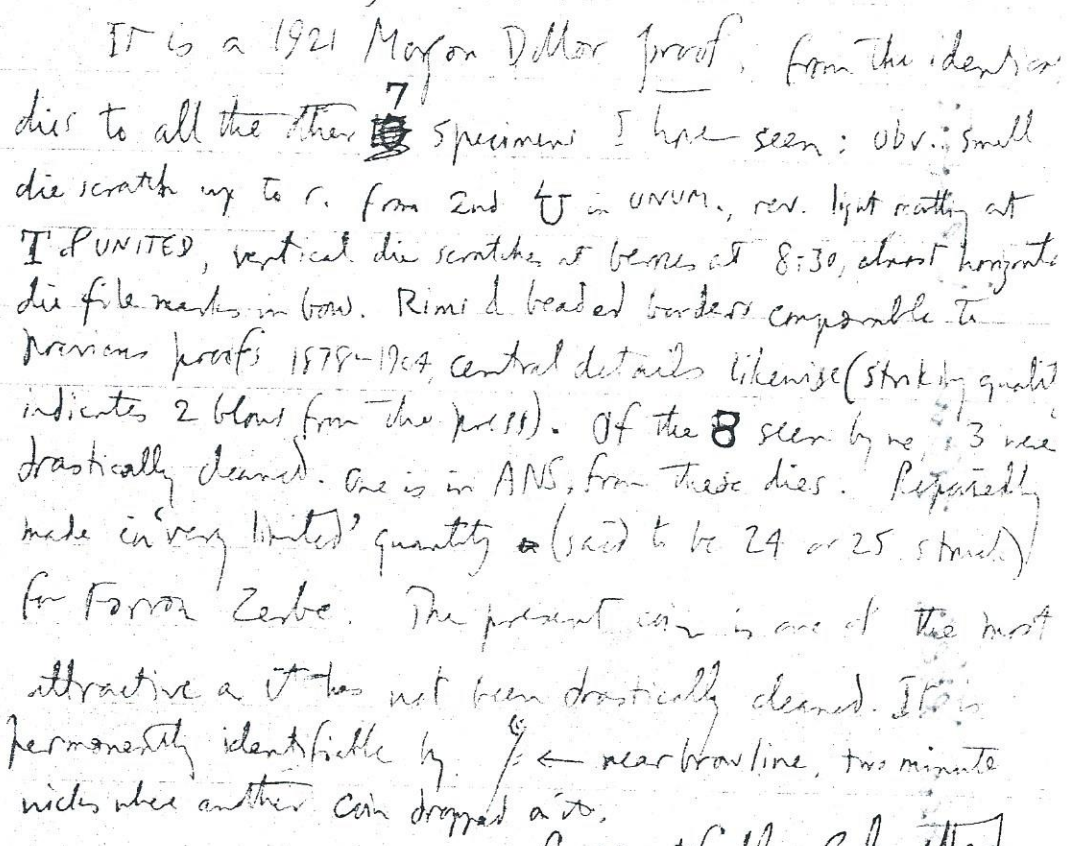 It is a 1921 Morgan Dollar proof, from the identical
dies to all the other 7 specimens I have seen: obv. small
die scratch up to r. from 2nd U in UNUM., rev. light at
T of UNITED, vertical die scratches at berries at 8:30, almost horizontal
die file marks in bow. Rims & beaded borders comparable to
previous proofs 1878-1904, central details likewise (striking quality
indicates 2 blows from the press). Of the 8 seen by me, 3 were
drastically cleaned. One is in ANS, from these dies. Reputedly
made in 'very limited' quantity (said to be 24 or 25 struck)
for Farran Zerbe. The present coin is one of the most
attractive as it has not been drastically cleaned. It is
permanently identifiable by ← near browline, two minute
nicks where another coin dropped on it.